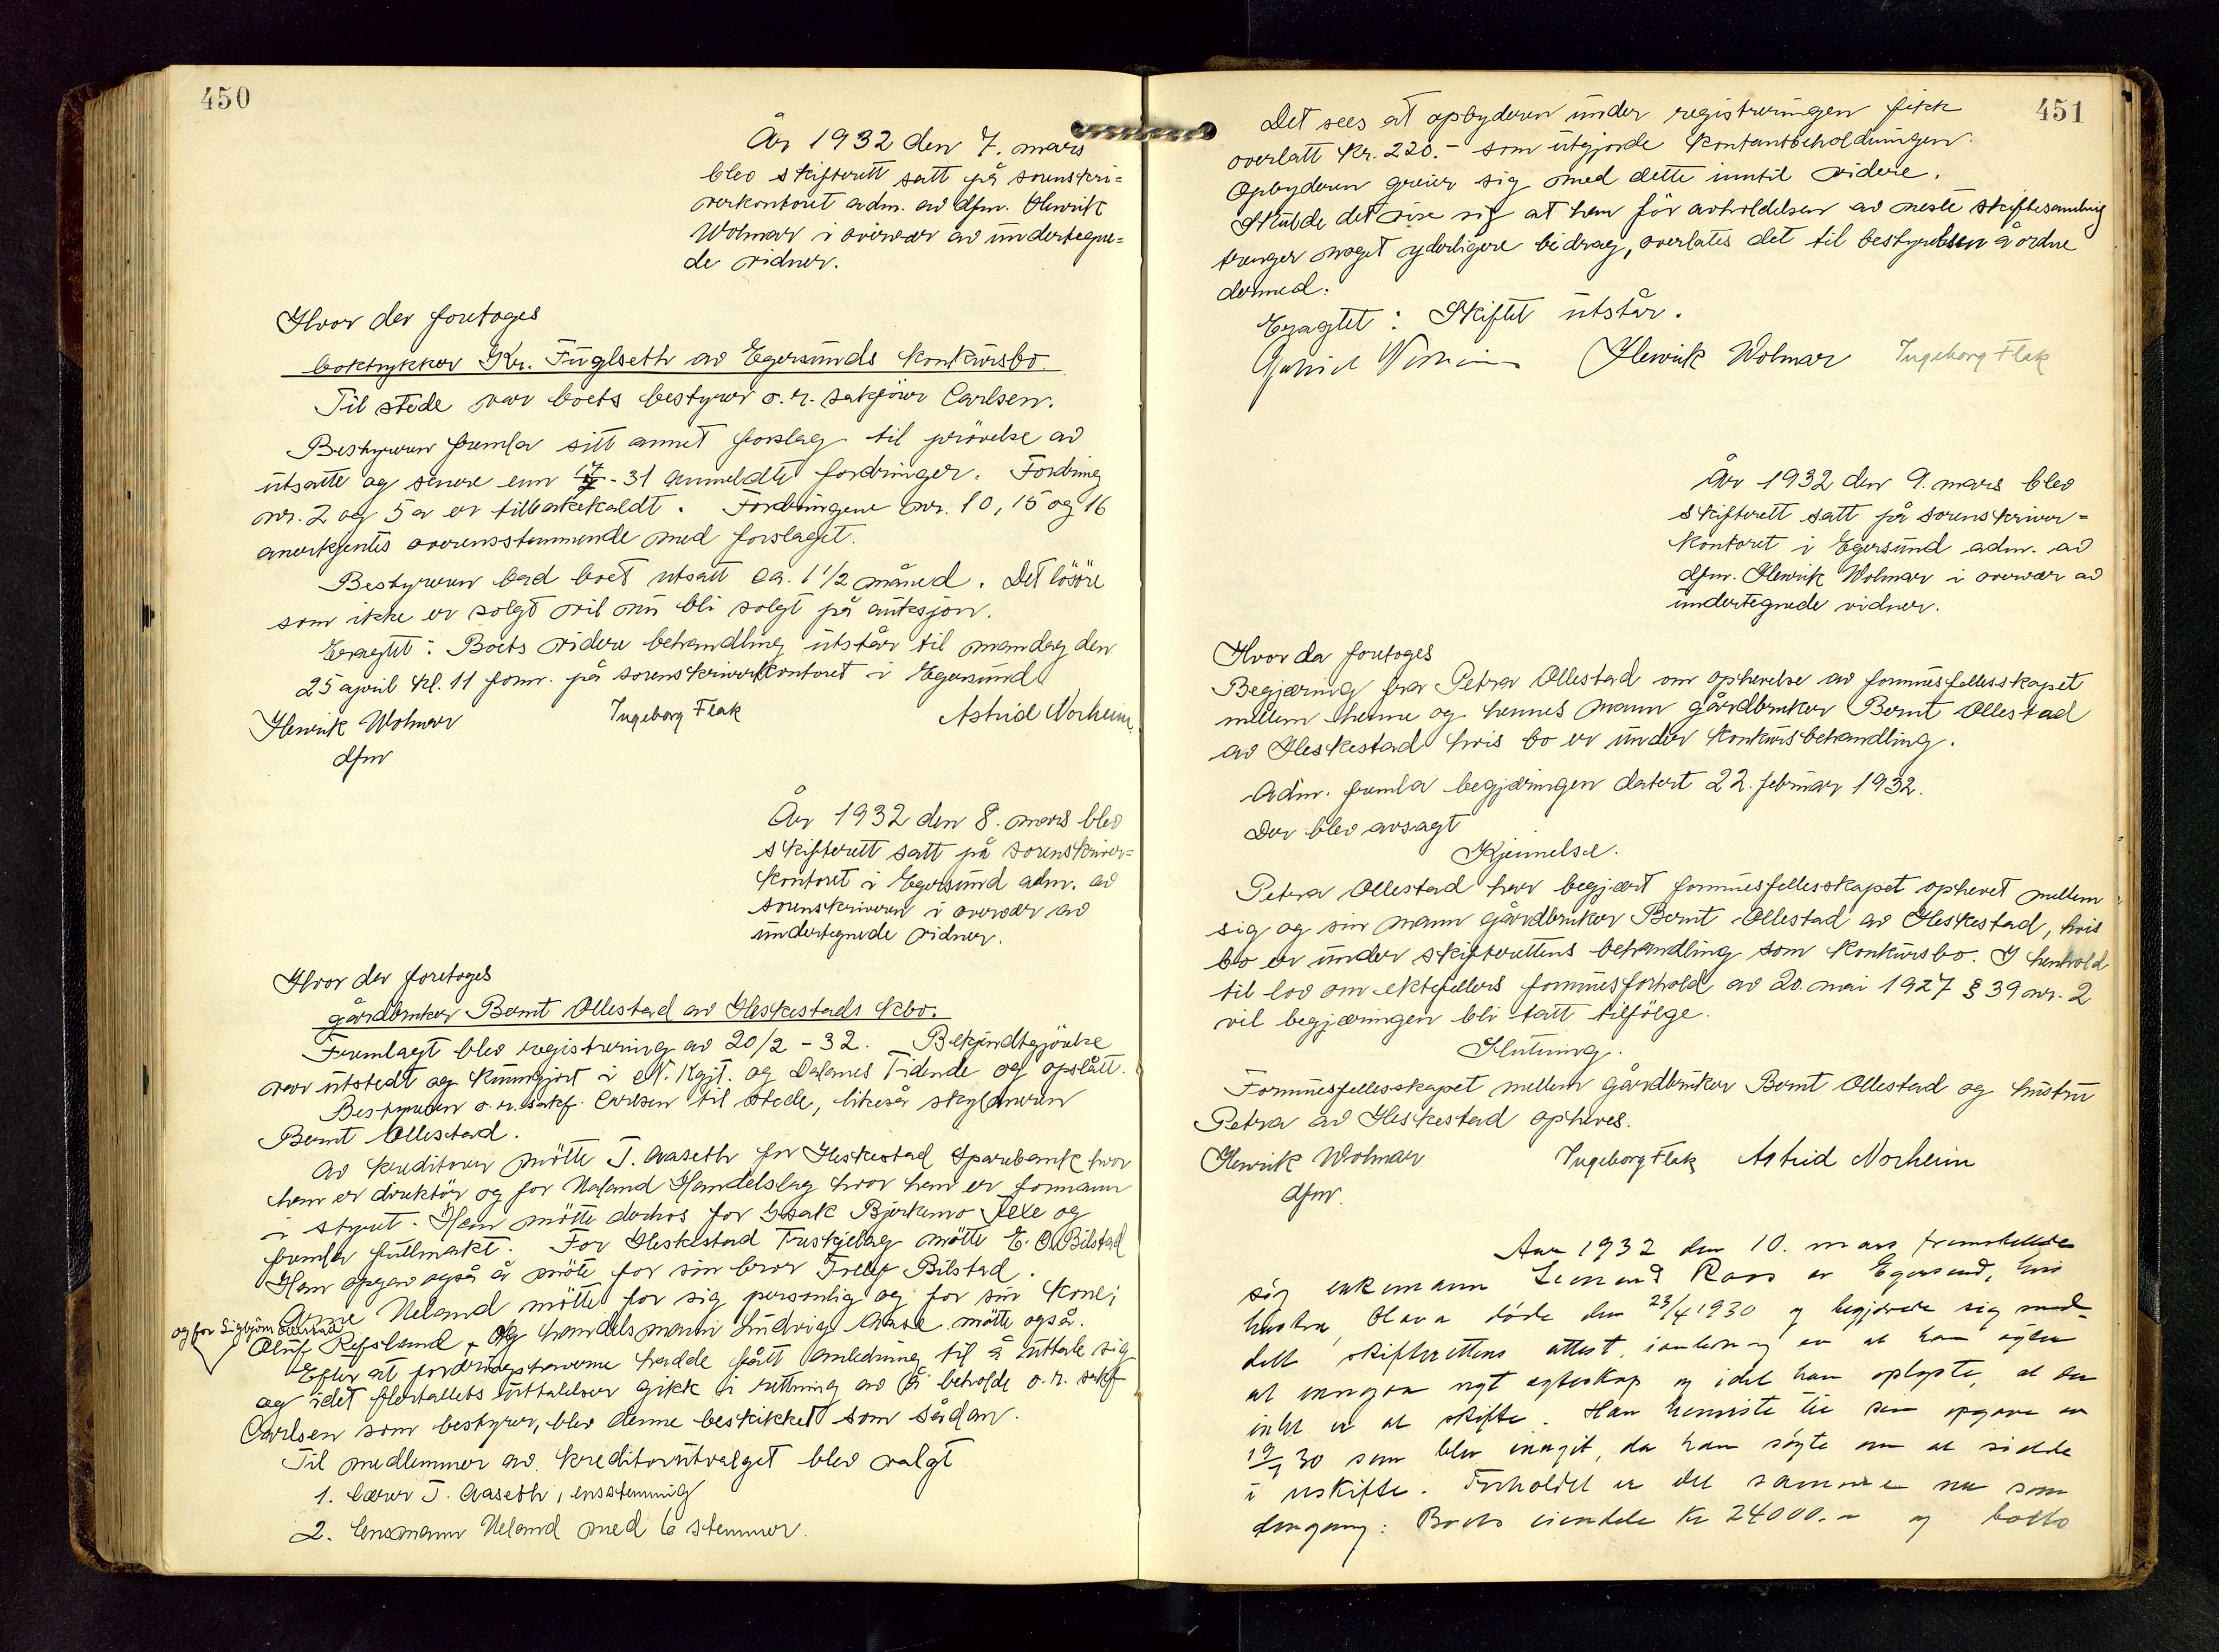 450
År 1932 den 7. mars
blev skifterett satt på sorenskri=
verkontoret adm. av dfm. Henrik
Wolmar i overvær av undertegne=
de vidner.
Hvor der foretoges
boktrykker Kr. Fuglseth av Egersunds konkursbo.
Til stede var boets bestyrer o.r. sakfører Carlsen.
Bestyreren fremla sitt annet forslag til prövelse av
utsatte og senere enn - 31 anmeldte fordringer. Fordring
nr. 2 og 5a er tilbakekaldt. Fordringene nr. 10, 15 og 16
anerkjentes overensstemmende med forslaget.
Bestyreren bad boet utsatt ca. 1 1/2 måned. Det lösöre
som ikke er solgt vil nu bli solgt på auksjon.
Eragtet: Boets videre behandling utstår til mandag den
25 april kl. 11 form. på sorenskriverkontoret i Egersund.
Henrik Wolmar Ingeborg Flak Astrid Norheim
dfm
År 1932 den 8. mars blev
skifterett satt på sorenskriver=
kontoret i Egersund adm. av
sorenskriveren i overvær av
undertegnede vidner.
Hvor der foretoges
gårdbruker Bernt Ollestad av Heskestads kbo.
Fremlagt blev registrering av 20/2 - 32. Bekjendtgjörelse
var utstedt og kunngjort i N. Kgjt. og Dalanes Tidende og opslått.
Bestyreren o.r.sakf. Carlsen til stede, likeså skyldneren
Bernt Ollestad.
Av kreditorer mötte T. Aaseth for Heskestad Sparebank hvor
han er direktör og for Ualand Handelslag hvor han er formann
i styret. Han mötte derhos for Isak Bjerkemo Fexe og
fremla fullmakt. For Heskestad Treskjelag mötte E. O. Bilstad
Han opgav også å möte for sin bror Tollef Bilstad.
Arne Ueland mötte for sig personlig og for sin kone;
og for Sigbjörn Ollestad
Oluf Refsland. Og handelsmann Ludvig Aase mötte også.
Efter at fordringshaverne hadde fått anledning til å uttale sig
og idet flertallets uttalelser gikk i retning av å beholde o.r. sakf
Carlsen som bestyrer, blev denne beskikket som sådan.
Til medlemmer av kreditorutvalget blev valgt
1. lærer T. Aaseth, ensstemmig
2. lensmann Ueland med 6 stemmer.
451
Det sees at opbyderen under registreringen fikk
overlatt kr. 220.- som utgjorde kontantbeholdningen.
Opbyderen greier sig med dette inntil videre.
Skulde det vise sig at han för avholdelsen av neste skiftesamling
trenger noget yderligere bidrag, overlates det til bestyrelsen å ordne
dermed.
Eragtet: Skiftet utstår.
Henrik Wolmar Ingeborg Flak
År 1932 den 9. mars blev
skifterett satt på sorenskriver=
kontoret i Egersund adm. av
dfm. Henrik Wolmar i overvær av
undertegnede vidner.
Hvor da foretoges
Begjæring fra Petra Ollestad om ophevelse av formuesfellesskapet
mellem henne og hennes mann gårdbruker Bernt Ollestad
av Heskestad hvis bo er under konkursbehandling.
Adm. fremla begjæringen datert 22. februar 1932.
Der blev avsagt
Kjennelse.
Petra Ollestad har begjært formuesfellesskapet ophevet mellem
sig og sin mann gårdbruker Bernt Ollestad av Heskestad, hvis
bo er under skifterettens behandling som konkursbo. I henhold
til lov om ektefellers formuesforhold av 20. mai 1927 § 39 nr. 2
vil begjæringen bli tatt tilfölge.
Slutning.
Formuesfellesskapet mellem gårdbruker Bernt Ollestad og hustru
Petra av Heskestad opheves.
Henrik Wolmar Ingeborg Flak Astrid Norheim
dfm.
Aar 1932 den 10. mars fremstillede
sig enkemann Roos av Egersund, hvis
hustru, Olava döde den 23/4 1930 og begjærede sig med-
delt skifterettens attest, i anledning av at han agter
at inngaa nyt egteskap og idet han oplyste, at der
intet er at skifte. Han henviste til den opgave av
30 som blev inngit, da han sögte om at sidde
i uskifte. Forholdet er det samme nu som
dengang: Boets eiendele kr 24000.- og boets